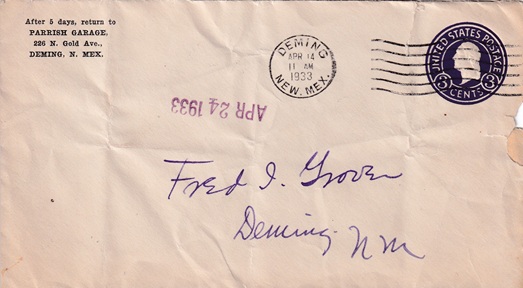 After 5 days, return to
PARRISH GARAGE,
226 N. Gold Ave.,
DEMING, N. MEX.
DEMING
APR 14
11 AM
1933
NEW. MEX.
UNITED STATES POSTAGE
3 CENTS 3
APR 24 1933
Fred I. Grover
Deming NM